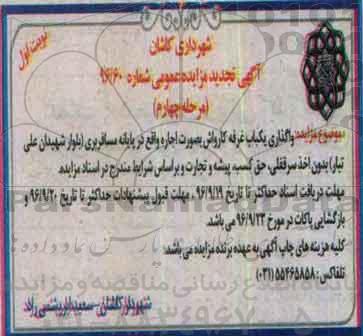 نوبت اول
شهرداری کاشان
آگهی تجدید مزایده عمومی شماره ۹۶/۶۰
(مرحله چهارم)
موضوع مزایده: واگذاری یکباب غرفه کارواش بصورت اجاره واقع در پایانه مسافربری (بلوار شهیدان علی
تبار) بدون اخذ سرقفلی، حق کسب، پیشه و تجارت و براساس شرایط مندرج در اسناد مزایده.
مهلت دریافت اسناد حداکثر تا تاریخ ۹۶/۹/۱۹ ، مهلت قبول پیشنهادات حداکثر تا تاریخ ۹۶/۹/۲۰ و
بازگشایی پاکات در مورخ ۹۶/۹/۲۳ می باشد.
کلیه هزینه های چاپ آگهی به عهده برنده مزایده می باشد.
تلفاکس: ۰۳۱)۵۵۴۶۵۸۵۸)
شهردار کاشان - سعید ابریشمی راد